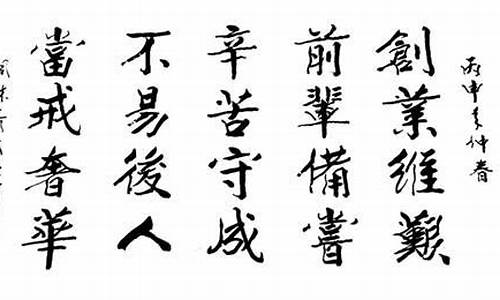 丙申年仲春
創業維艱
前輩備嘗
辛苦守成
不易後人
當戒奢華